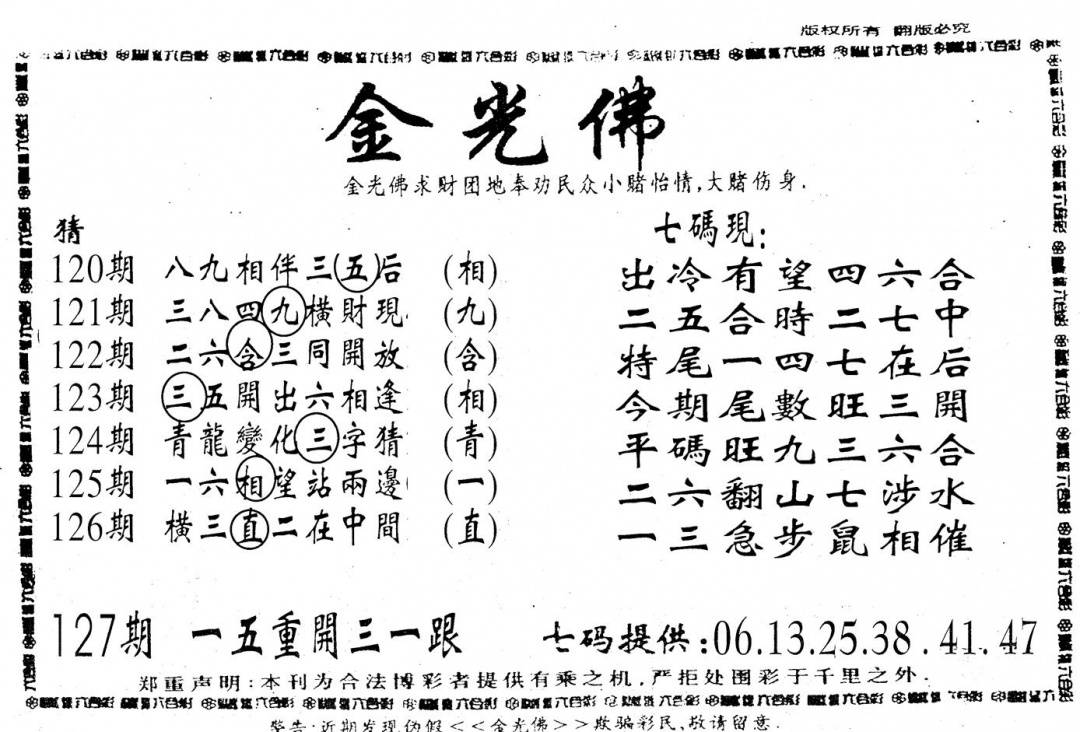 版权所有 翻版必究
金光佛
金光佛求财团地奉劝民众小赌怡情,大赌伤身.
猜
120期 八九相伴三五后 (相)
121期 三八四九横財現 (九)
122期 二六含三同開放 (含)
123期 三五開出六相逢 (相)
124期 青龍變化三字猜 (青)
125期 一六相望站兩邊 (一)
126期 横三直二在中間 (直)
七碼現:
出冷有望四六合
二五合時二七中
特尾一四七在后
今期尾數旺三開
平碼旺九三六合
二六翻山七涉水
一三急步鼠相催
127期 一五重開三一跟 七码提供:06.13.25.38.41.47
郑重声明:本刊为合法博彩者提供有乘之机,严拒处围彩于千里之外.
警告:近期发现伪假<<金光佛>>欺骗彩民,敬请留意.